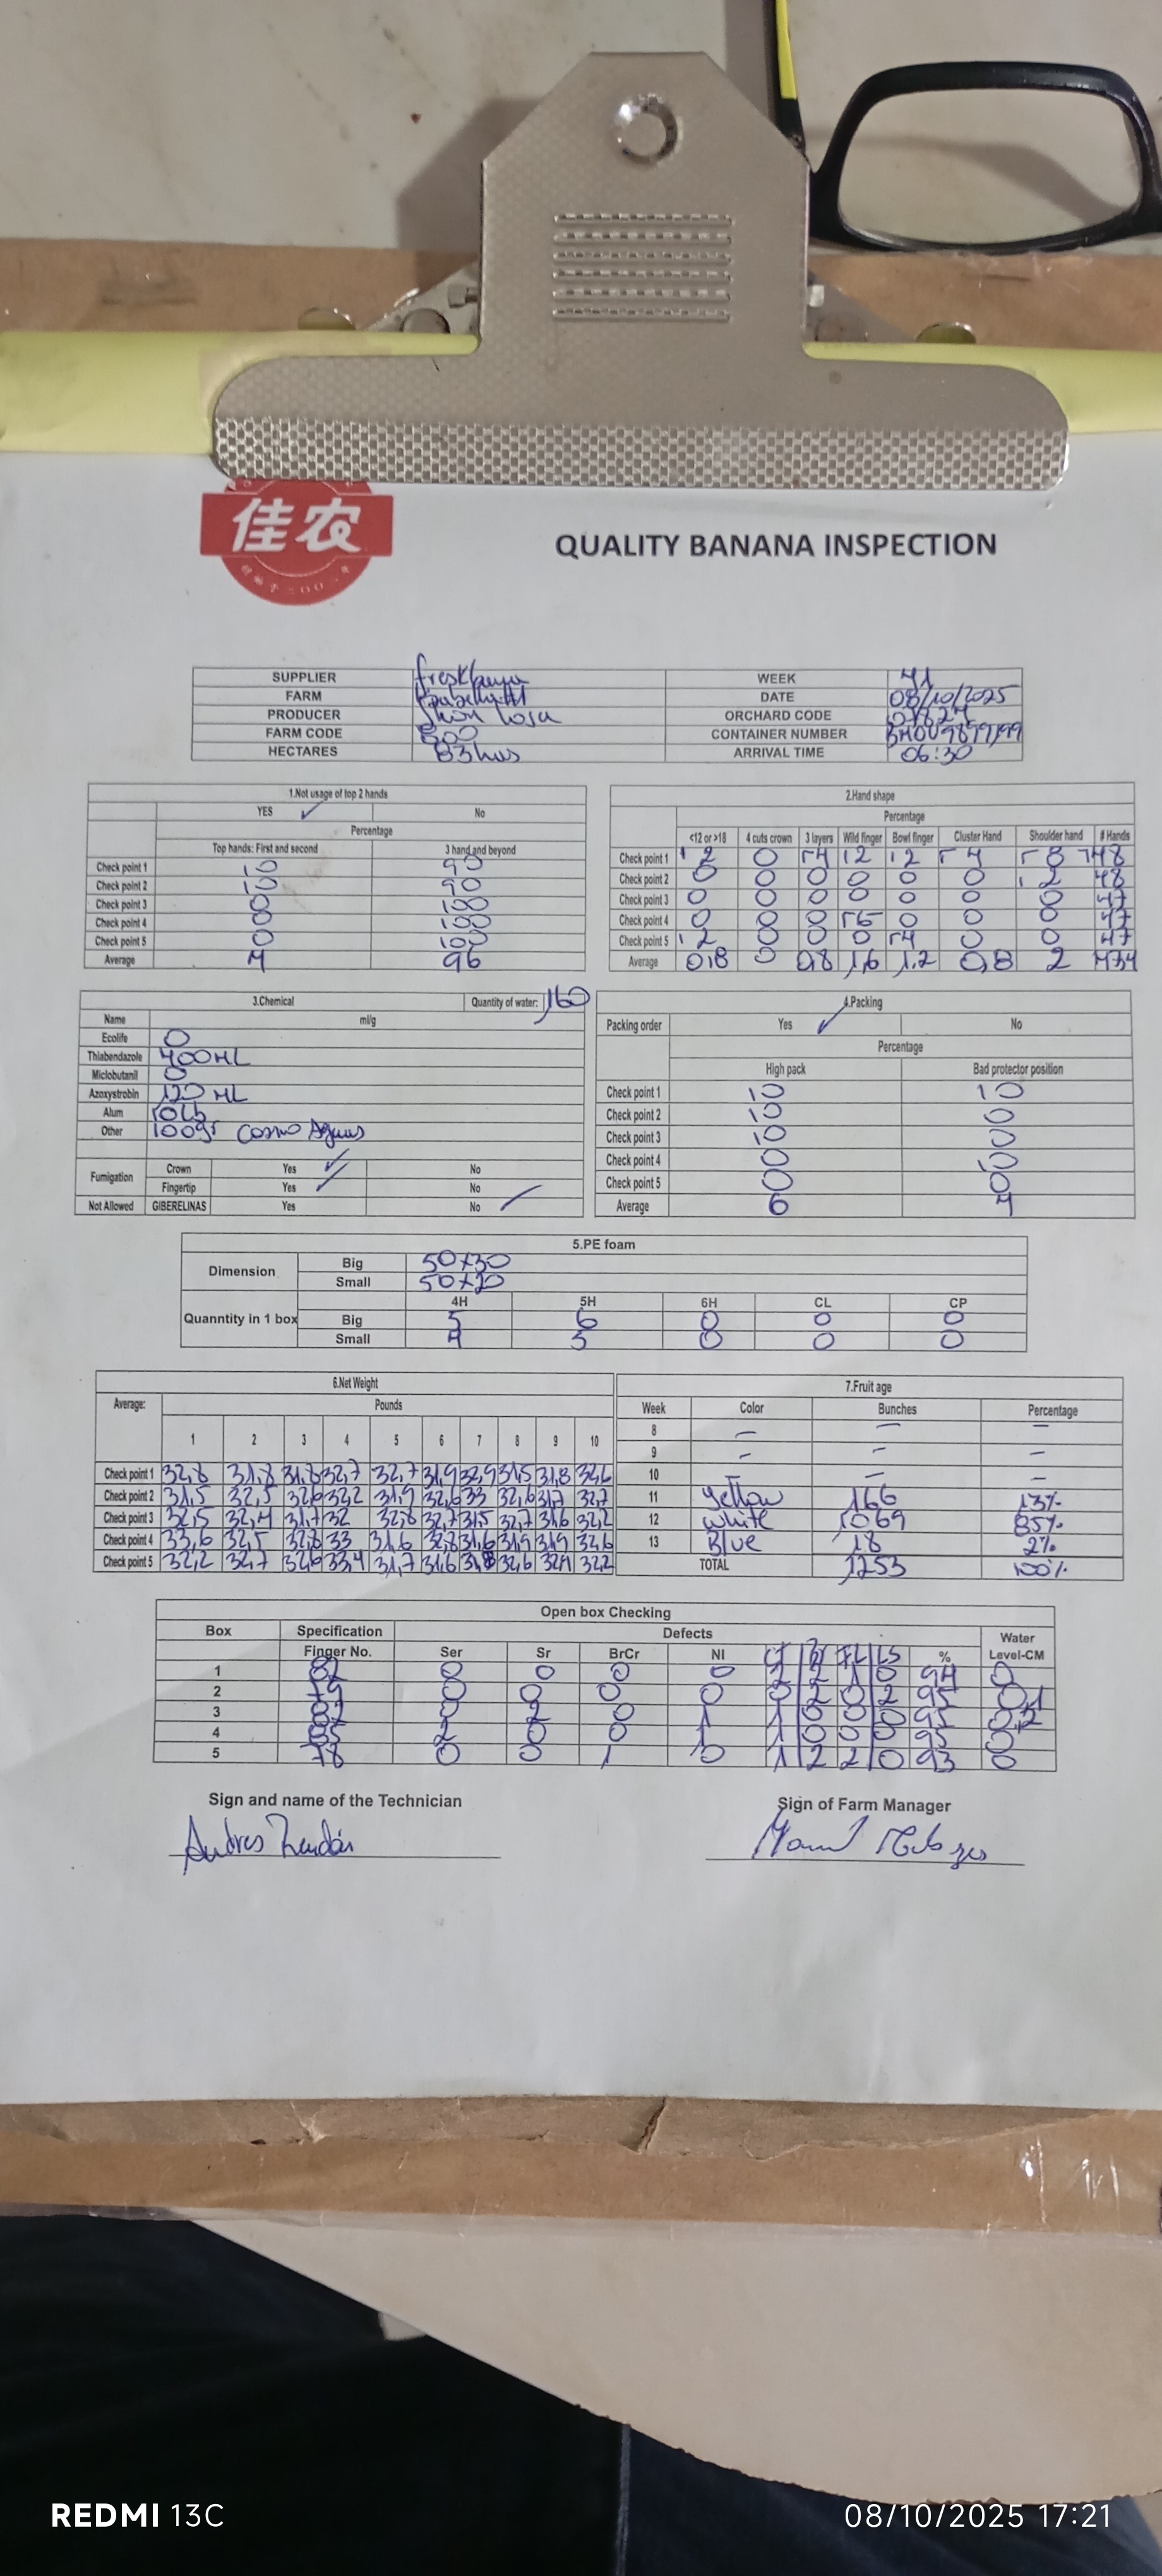 佳农
QUALITY BANANA INSPECTION
SUPPLIER WEEK 41
FARM DATE 08/10/2025
PRODUCER Jhon ORCHARD CODE
FARM CODE CONTAINER NUMBER
HECTARES 83 has ARRIVAL TIME 06:30
1.Not usage of top 2 hands
YES ✓ No
Percentage
Top hands: First and second 3 hand and beyond
Check point 1 10 90
Check point 2 10 90
Check point 3 0 100
Check point 4 0 100
Check point 5 0 100
Average 4 96
2.Hand shape
Percentage
<12 or >18 4 cuts crown 3 layers Wild finger Bowl finger Cluster Hand Shoulder hand # Hands
Check point 1 2 0 4 2 2 4 8 48
Check point 2 0 0 0 0 0 0 2 48
Check point 3 0 0 0 0 0 0 0 47
Check point 4 0 0 0 6 0 0 0 47
Check point 5 2 0 0 0 4 0 0 47
Average 0,8 0 0,8 1,6 1.2 0,8 2
3.Chemical Quantity of water: 160
Name ml/g
Ecolife 0
Thiabendazole 400ML
Miclobutanil 0
Azoxystrobin 120 ML
Alum 10Lb
Other 100gr Cosmo Aguas
Fumigation Crown Yes ✓ No
Fingertip Yes ✓ No
Not Allowed GIBERELINAS Yes No
4.Packing
Packing order Yes ✓ No
Percentage
High pack Bad protector position
Check point 1 10 10
Check point 2 10 0
Check point 3 10 0
Check point 4 0 10
Check point 5 0 0
Average 6 4
5.PE foam
Dimension Big 50x30
Small 50x20
Quanntity in 1 box 4H 5H 6H CL CP
Big 5 6 0 0 0
Small 4 5 0 0 0
6.Net Weight
Average: Pounds
1 2 3 4 5 6 7 8 9 10
Check point 1 32,8 31,8 31,8 32,7 32,7 31,9 32,9 31,5 31,8 32,6
Check point 2 31,5 32,5 32,6 32,2 31,9 32,6 33 32,6 31,7 32,7
Check point 3 32,5 32,4 31,7 32 32,8 32,7 31,5 32,7 31,6 32,2
Check point 4 33,6 32,5 32,8 33 31,6 32,8 31,6 31,9 31,9 32,6
Check point 5 32,2 32,7 32,6 33,4 31,7 31,6 32,6 32,1 32,2
7.Fruit age
Week Color Bunches Percentage
8 – – –
9 – – –
10 – – –
11 Yellow 166 13%
12 White 1069 85%
13 Blue 18 2%
TOTAL 1253 100%
Open box Checking
Box Specification Defects Water
Finger No. Ser Sr BrCr NI FL LS % Level-CM
1 82 0 0 0 0 2 2 1 0 94 0
2 79 0 0 0 0 0 2 0 2 95 0,1
3 82 0 2 0 1 1 0 0 0 95 0,2
4 85 2 0 0 1 1 0 0 0 95 0
5 78 0 0 1 0 1 2 2 0 93 0
Sign and name of the Technician Sign of Farm Manager
Andres
REDMI 13C
08/10/2025 17:21